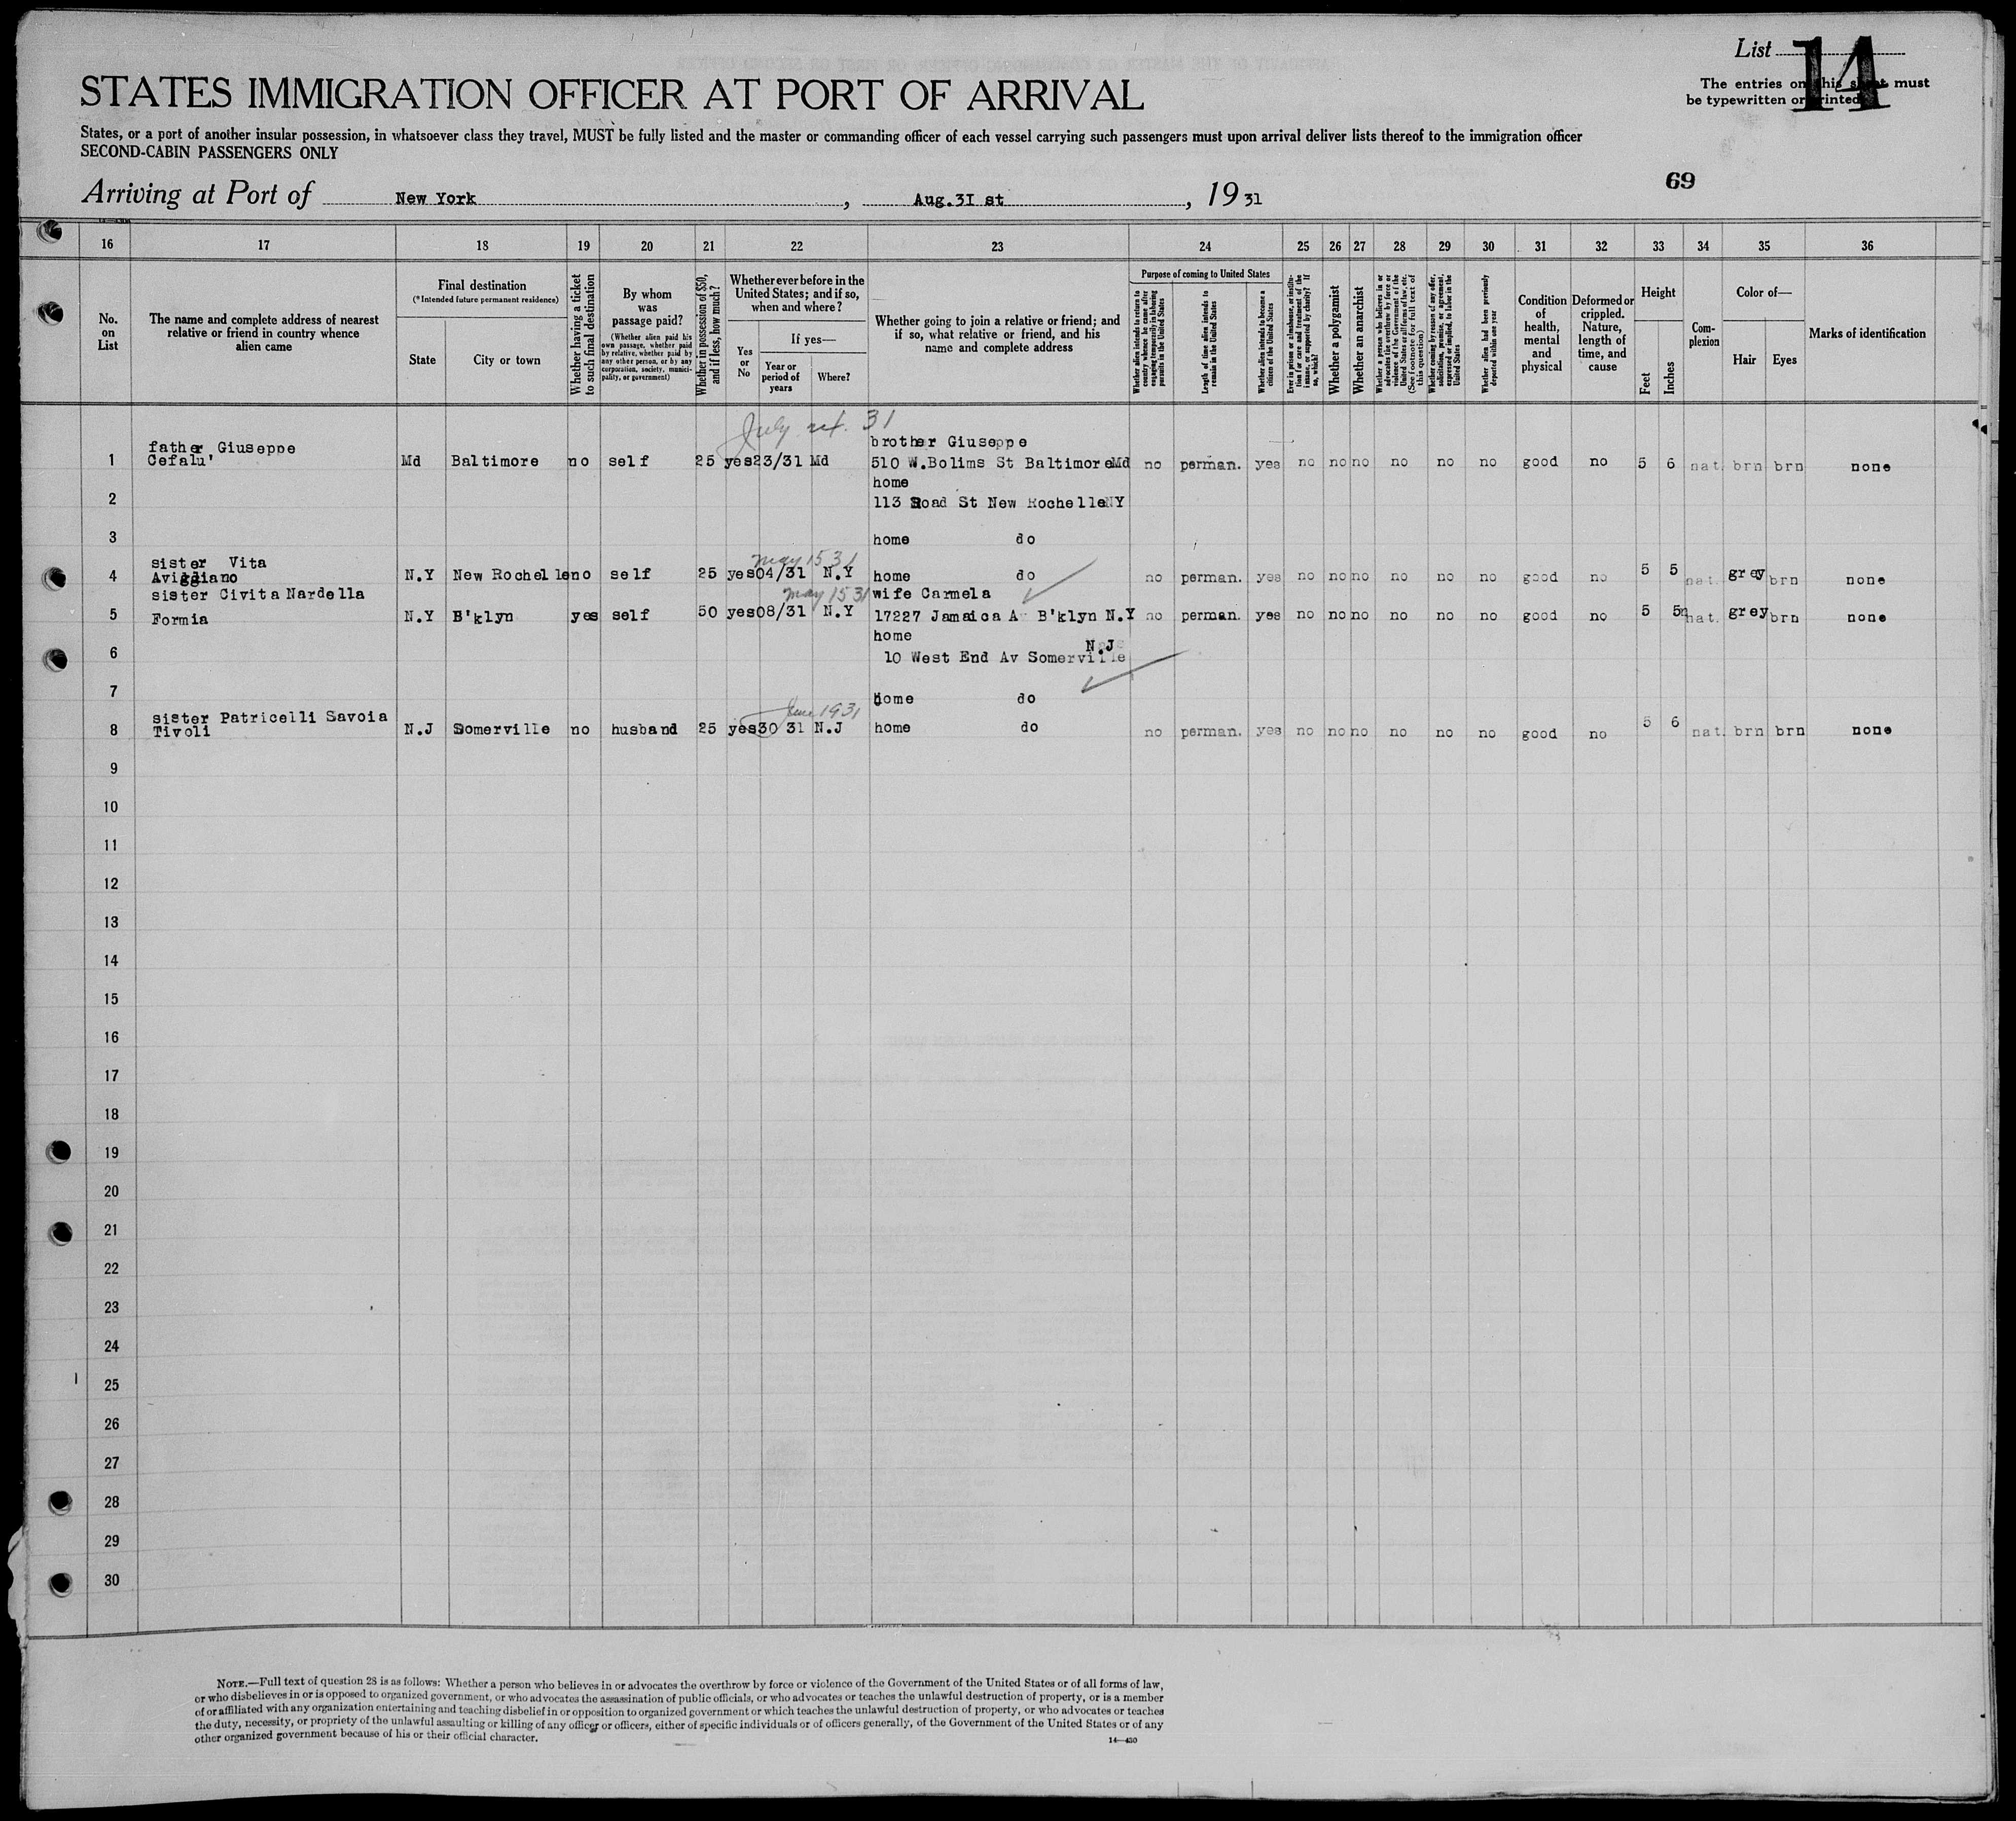 List 14
STATES IMMIGRATION OFFICER AT PORT OF ARRIVAL
The entries on this sheet must
be typewritten or printed
States, or a port of another insular possession, in whatsoever class they travel, MUST be fully listed and the master or commanding officer of each vessel carrying such passengers must upon arrival deliver lists thereof to the immigration officer
SECOND-CABIN PASSENGERS ONLY
69
Arriving at Port of New York, Aug.3I st, 19 31
16 17 18 19 20 21 22 23 24 25 26 27 28 29 30 31 32 33 34 35 36
No.
on
List
The name and complete address of nearest
relative or friend in country whence
alien came
Final destination
(*Intended future permanent residence)
State
City or town
Whether having a ticket
to such final destination
By whom
was
passage paid?
(Whether alien paid his
own passage, whether paid
by relative, whether paid by
any other person, or by any
corporation, society, munici-
pality, or government)
Whether in possession of $50,
and if less, how much?
Whether ever before in the
United States; and if so,
when and where?
Yes
or
No
If yes—
Year or
period of
years
Where?
Whether going to join a relative or friend; and
if so, what relative or friend, and his
name and complete address
Purpose of coming to United States
Whether alien intends to return to
country whence he came after
engaging temporarily in laboring
pursuits in the United States
Length of time alien intends to
remain in the United States
Whether alien intends to become a
citizen of the United States
Ever in prison or almshouse, or institu-
tion for care and treatment of the
insane, or supported by charity? If
so, which?
Whether a polygamist
Whether an anarchist
Whether a person who believes in or
advocates the overthrow by force or
violence of the Government of the
United States or all forms of law, etc.
(See footnote for full text of
this question)
Whether coming by reason of any offer,
solicitation, promise, or agreement,
expressed or implied, to labor in the
United States
Whether alien had been previously
deported within one year
Condition
of
health,
mental
and
physical
Deformed or
crippled.
Nature,
length of
time, and
cause
Height
Feet
Inches
Com-
plexion
Color of—
Hair
Eyes
Marks of identification
July 31
father Giuseppe brother Giuseppe
1 Cefalu' Md Baltimore no self 25 yes 23/31 Md 510 W.Bolims St Baltimore Md no perman. yes no no no no no no good no 5 6 nat. brn brn none
home
2 113 Road St New Rochelle NY
3 home do
sister Vita May 15 31
4 Avigliano N.Y New Rochelle no self 25 yes 04/31 N.Y home do no perman. yes no no no no no no good no 5 5 nat. grey brn none
sister Civita Nardella May 15 31 wife Carmela
5 Formia N.Y B'klyn yes self 50 yes 08/31 N.Y 17227 Jamaica Av B'klyn N.Y no perman. yes no no no no no no good no 5 5 nat. grey brn none
home
6 10 West End Av Somerville N.J
7 home do
sister Patricelli Savoia June 1931
8 Tivoli N.J Somerville no husband 25 yes 30 31 N.J home do no perman. yes no no no no no no good no 5 6 nat. brn brn none
9
10
11
12
13
14
15
16
17
18
19
20
21
22
23
24
25
26
27
28
29
30
NOTE.—Full text of question 28 is as follows: Whether a person who believes in or advocates the overthrow by force or violence of the Government of the United States or of all forms of law,
or who disbelieves in or is opposed to organized government, or who advocates the assassination of public officials, or who advocates or teaches the unlawful destruction of property, or is a member
of or affiliated with any organization entertaining and teaching disbelief in or opposition to organized government or which teaches the unlawful destruction of property, or who advocates or teaches
the duty, necessity, or propriety of the unlawful assaulting or killing of any officer or officers, either of specific individuals or of officers generally, of the Government of the United States or of any
other organized government because of his or their official character.
14—430